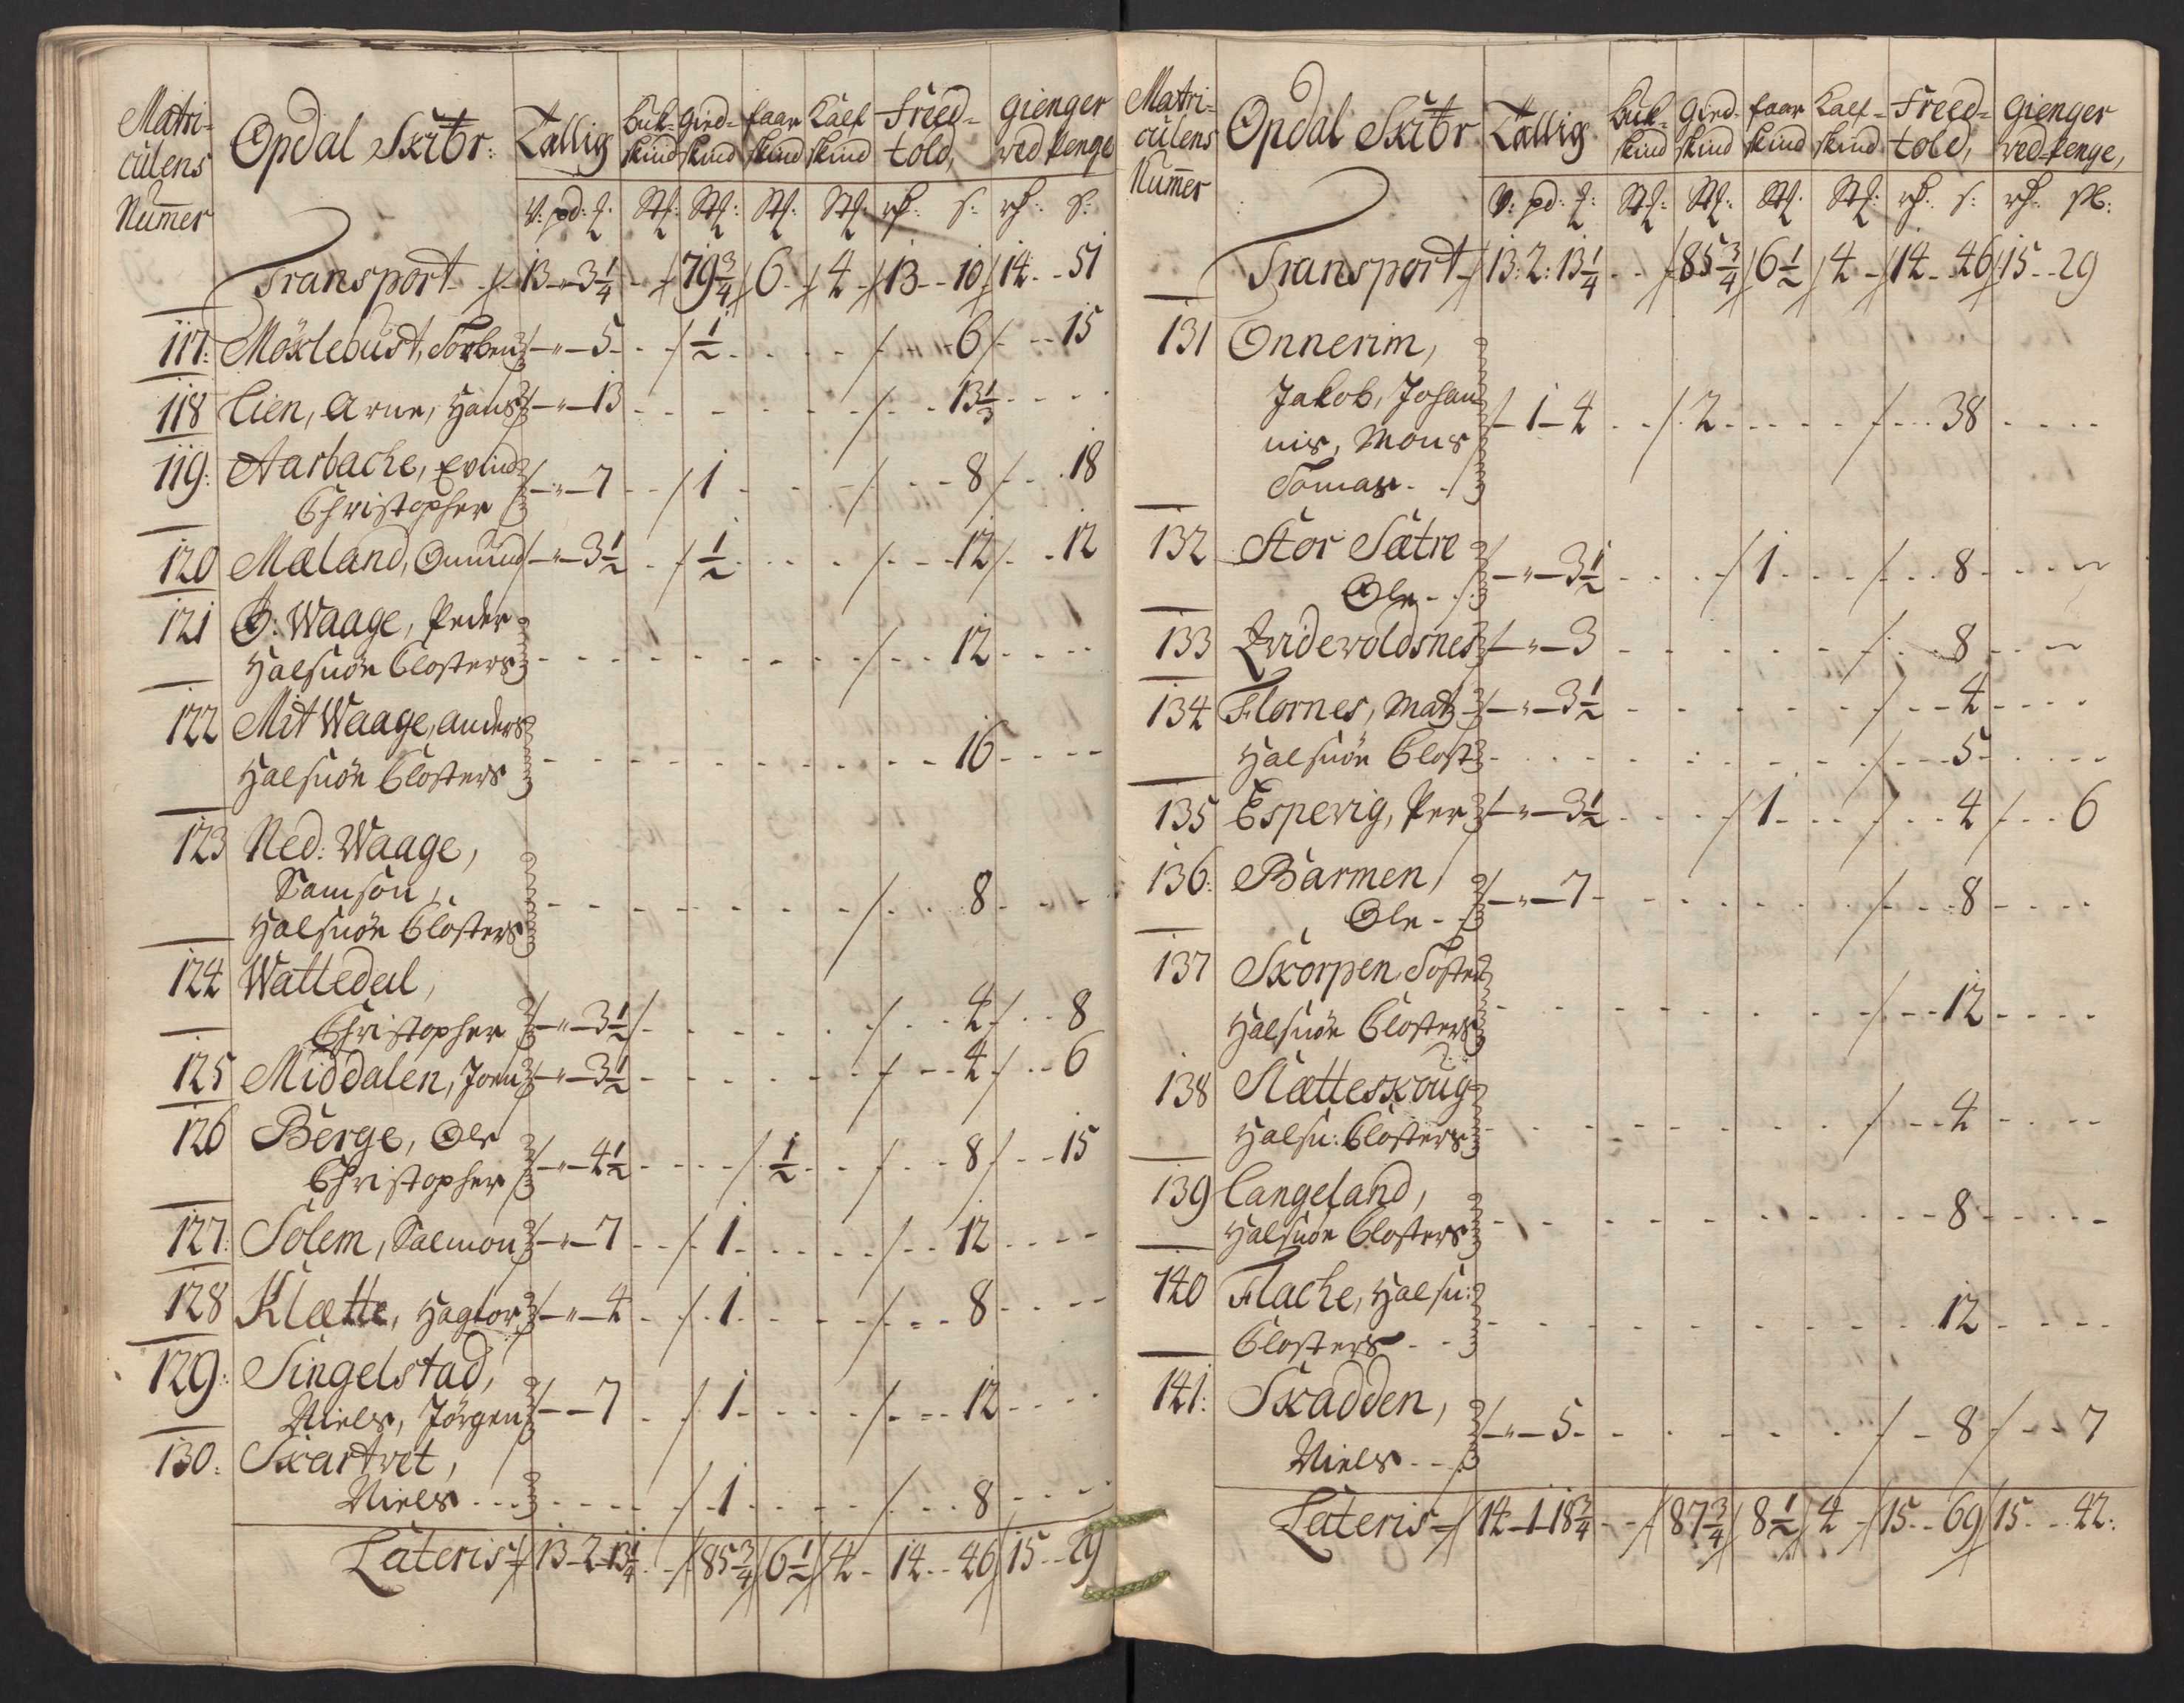 Matri-
culens
Numer
Opdal Skibr:
Tallig
Buk-
skind
Gied-
skind
faar
skind
Kalf
skind
Freed-
told,
gienger
ved penge
V: pd: t: St: St: St: St: rd: s: rd: s:
Transport 13 - 3 1/4 79 3/4 6 4 13 - 10 14 - 51
117: Möxlebust, Torben - " - 5 1/2 6 15
118 Lien, Arne, Hans - " - 13 13 1/3
119: Aarbache, Evind
Christopher - " - 7 1 8 18
120 Mæland, Omund - " - 3 1/2 1/2 12 12
121 Ö: Waage, Peder
Halsnön Closters 12
122 Mit Waage, Anders
Halsnön Closters 16
123 Ned: Waage,
Samson,
Halsnön Closters 8
124 Wattedal,
Christopher - " - 3 1/2 4 8
125 Middalen, Joen - " - 3 1/2 4 6
126 Berge, Ole
Christopher - " - 4 1/2 1/2 8 15
127: Solem, Salmon - " - 7 1 12
128 Klætte, Hagtor - " - 4 1 8
129: Singelstad,
Niels, Jörgen - - 7 1 12
130: Skartvet,
Niels 1 8
Lateris 13 - 2 - 13 1/4 85 3/4 6 1/2 4 14 - 46 15 - 29
Matri-
culens
Numer
Opdal Skibr
Tallig
Buk-
skind
Gied-
skind
faar
skind
Kalf-
skind
Freed-
told,
gienger
ved penge,
V: pd: t: St: St: St: St: rd: s: rd: sk:
Transport 13: 2: 13 1/4 85 3/4 6 1/2 4 14 - 46 15 - 29
131 Onnerim,
Jakob, Johan
nis, Mons
Tomas - 1 - 4 2 38
132 Stor Sætre
Ole - " - 3 1/2 1 8
133 Qvidevoldsnes - " - 3 8
134 Flornes, Mat - " - 3 1/2 4
Halsnön Clost 5
135 Espevig, Per - " - 3 1/2 1 4 6
136: Barmen,
Ole - " - 7 8
137 Skorpen, Tosten
Halsnön Closters 12
138 Slætteskoug
Halsn: Closters 4
139 Langeland,
Halsnön Closters 8
140 Flache, Halsn:
Closters 12
141: Skadden,
Niels - " - 5 8 7
Lateris 14 - 1 - 18 3/4 87 3/4 8 1/2 4 15 - 69 15 - 42: